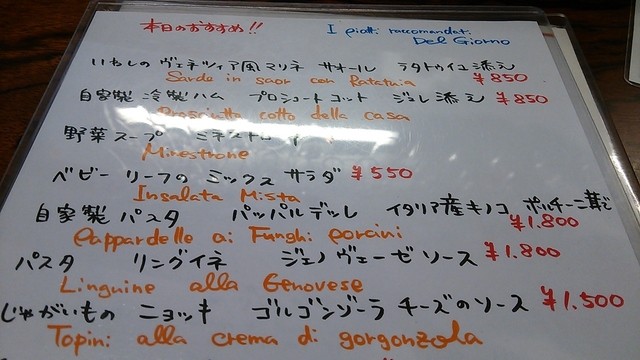 本日のおすすめ!!
I piatti raccomandat.
Del Giorno
いわしの ヴェネツィア風マリネ サオール ラタトゥイユ添え
Sarde in saor con Ratatuia ¥850
自家製 冷製ハム プロシュートコット ジュレ添え ¥850
Prosciutto cotto della casa
野菜スープ ミネストローネ
Minestrone
ベビーリーフの ミックス サラダ ¥550
Insalata Mista
自家製パスタ パッパルデッレ イタリア産キノコ ポルチーニ茸で
¥1.800
Pappardelle ai Funghi porcini
パスタ リングイネ ジェノヴェーゼソース ¥1.800
Linguine alla Genovese
じゃがいもの ニョッキ ゴルゴンゾーラ チーズのソース ¥1.500
Topini alla crema di gorgonzola